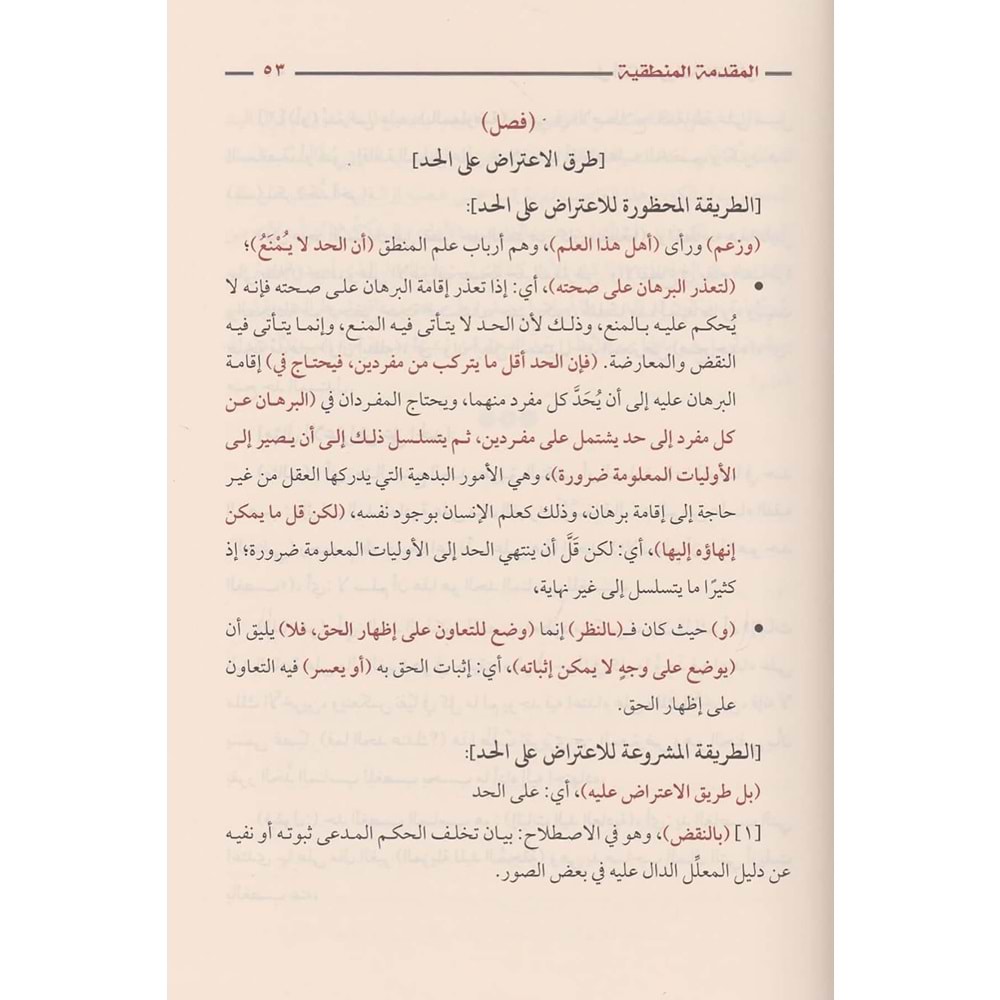 المقدمة المنطقية ٥٣
(فصل)
[طرق الاعتراض على الحد]
[الطريقة المحظورة للاعتراض على الحد]:
(وزعم) ورأى (أهل هذا العلم)، وهم أرباب علم المنطق (أن الحد لا يُمْنَعُ)؛
• (لتعذر البرهان على صحته)، أي: إذا تعذر إقامة البرهان على صحته فإنه لا
يُحكم عليه بالمنع، وذلك لأن الحد لا يتأتى فيه المنع، وإنما يتأتى فيه
النقض والمعارضة. (فإن الحد أقل ما يتركب من مفردين، فيحتاج في) إقامة
البرهان عليه إلى أن يُحَدَّ كل مفرد منهما، ويحتاج المفردان في (البرهان عن
كل مفرد إلى حد يشتمل على مفردين، ثم يتسلسل ذلك إلى أن يصير إلى
الأوليات المعلومة ضرورة)، وهي الأمور البدهية التي يدركها العقل من غير
حاجة إلى إقامة برهان، وذلك كعلم الإنسان بوجود نفسه، (لكن قل ما يمكن
إنهاؤه إليها)، أي: لكن قَلَّ أن ينتهي الحد إلى الأوليات المعلومة ضرورة؛ إذ
كثيرًا ما يتسلسل إلى غير نهاية،
• (و) حيث كان فـ(ـالنظر) إنما (وضع للتعاون على إظهار الحق، فلا) يليق أن
(يوضع على وجهٍ لا يمكن إثباته)، أي: إثبات الحق به (أو يعسر) فيه التعاون
على إظهار الحق.
[الطريقة المشروعة للاعتراض على الحد]:
(بل طريق الاعتراض عليه)، أي: على الحد
[١] (بالنقض)، وهو في الاصطلاح: بيان تخلف الحكم المدعى ثبوته أو نفيه
عن دليل المعلِّل الدال عليه في بعض الصور.